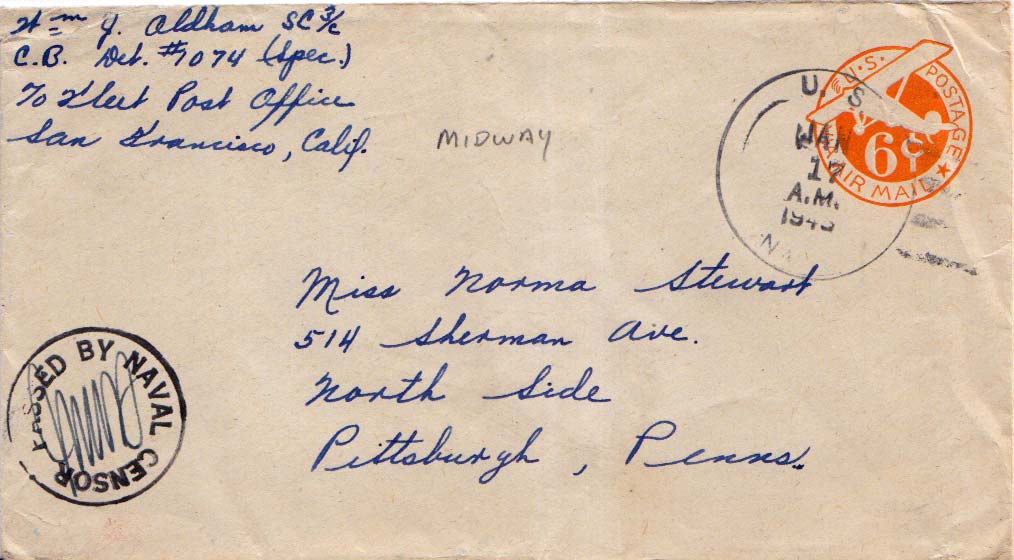 Wm J. Aldham SC 3/c
C.B. Det. #1074 (Spec.)
To Fleet Post Office
San Francisco, Calif.
MIDWAY
U.S.
JAN
17
A.M.
1945
U.S. POSTAGE
6¢
AIR MAIL
Miss Norma Stewart
514 Sherman Ave.
North Side
Pittsburgh, Penna.
PASSED BY NAVAL CENSOR